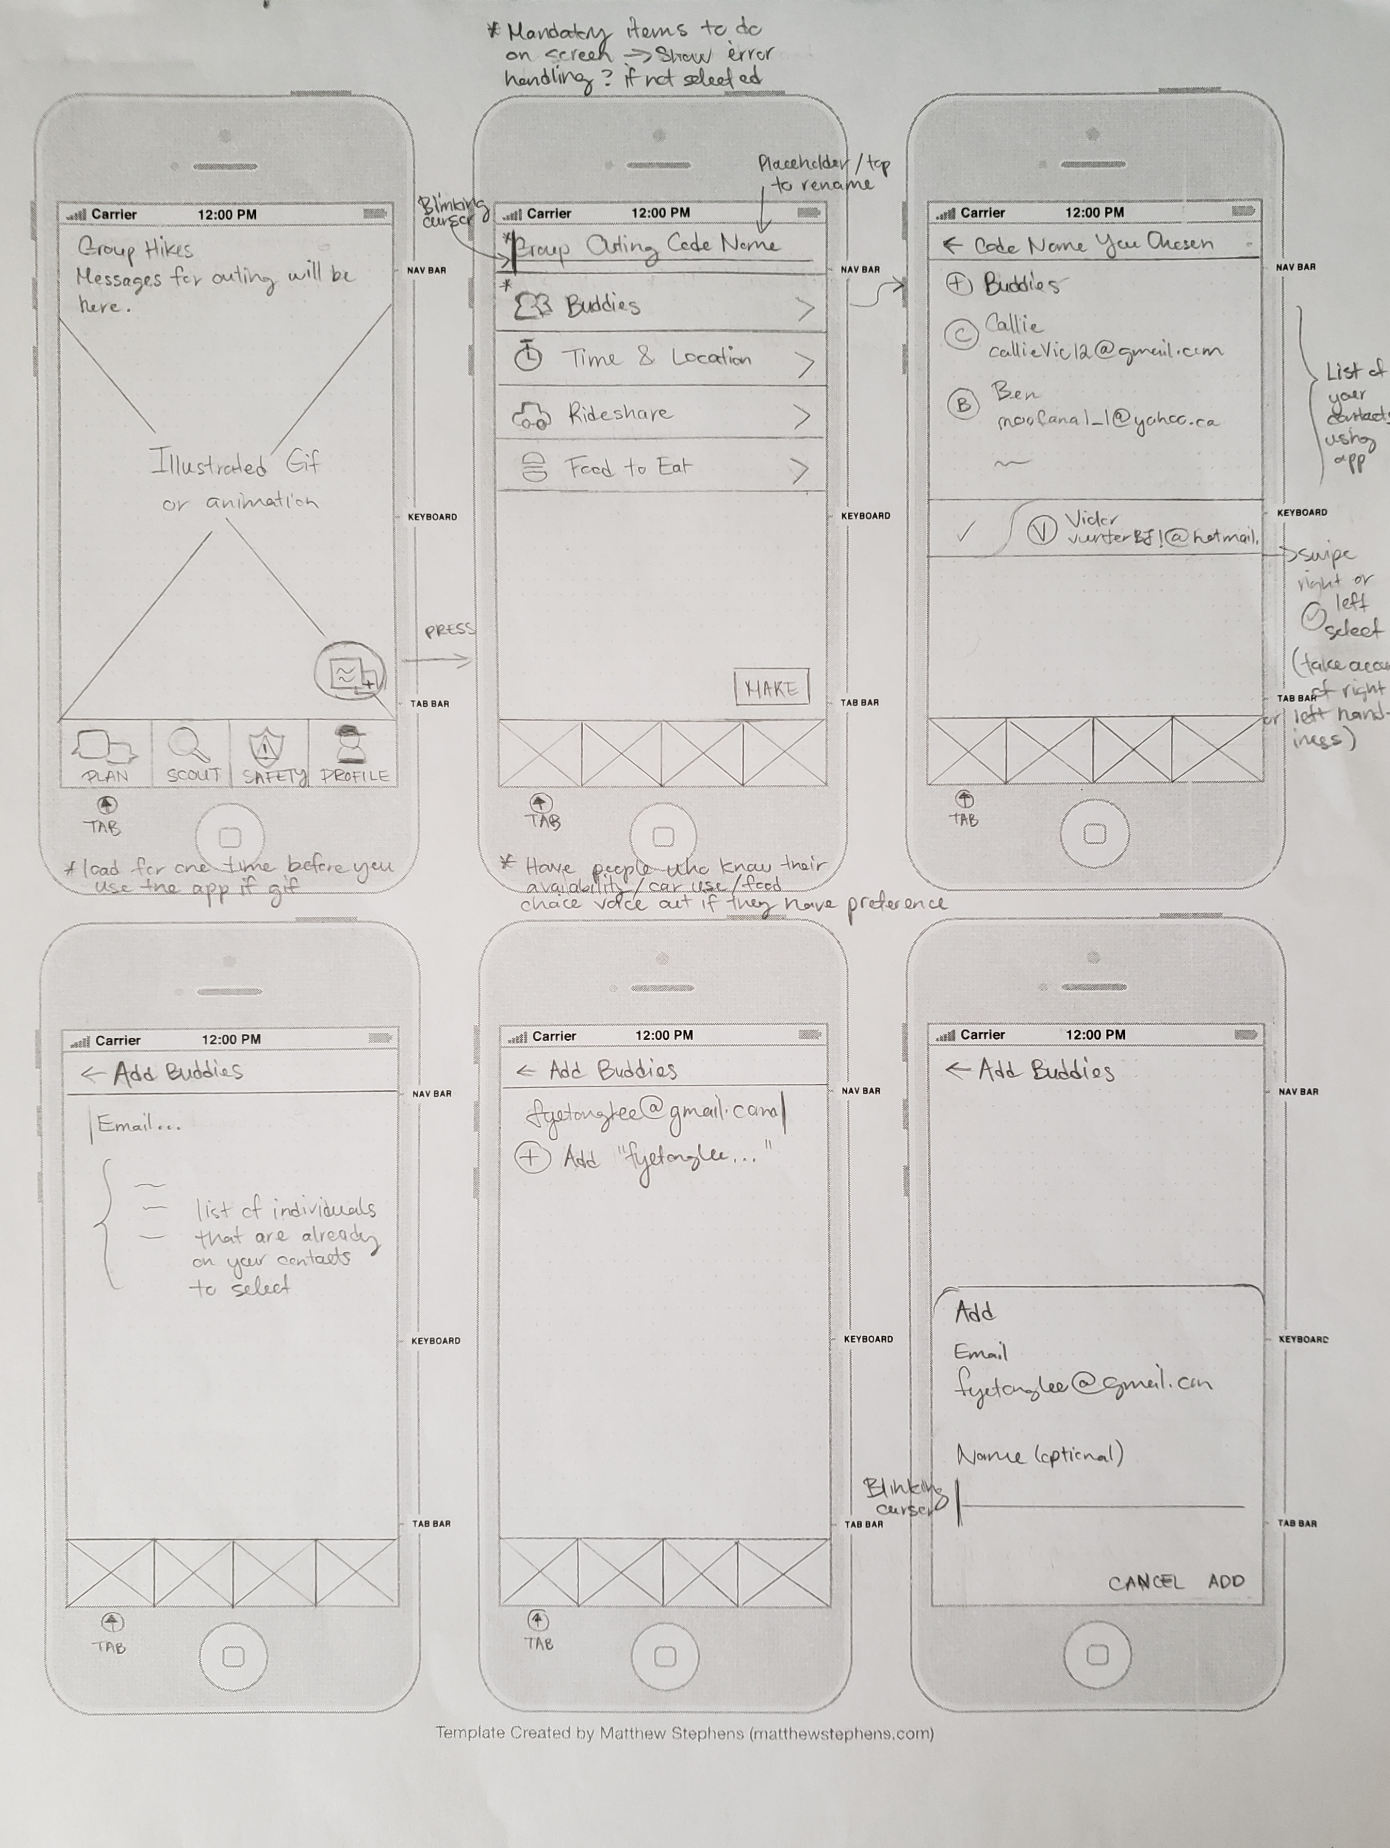 * Mandatory items to do
on screen → Show error
handling? if not selected
Carrier 12:00 PM
Group Hikes
Messages for outing will be
here.
Illustrated Gif
or animation
PLAN SCOUT SAFETY PROFILE
TAB
* load for one time before you
use the app if gif
NAV BAR
KEYBOARD
TAB BAR
PRESS
Blinking
cursor
Placeholder/tap
to rename
Carrier 12:00 PM
* Group Outing Code Name
* Buddies >
Time & Location >
Rideshare >
Food to Eat >
MAKE
TAB
* Have people who know their
availability/car use/food
choice voice out if they have preference
NAV BAR
KEYBOARD
TAB BAR
Carrier 12:00 PM
← Code Name You Chosen
+ Buddies
C Callie
callieVic12@gmail.com
B Ben
moofana1_1@yahoo.ca
✓ V Victor
@hotmail.
TAB
NAV BAR
List of
your
contacts
using
app
KEYBOARD
→ swipe
right or
left
select
(take accou
TAB BAR
of right
or left hand-
iness)
Carrier 12:00 PM
← Add Buddies
Email...
list of individuals
that are already
on your contacts
to select
TAB
NAV BAR
KEYBOARD
TAB BAR
Carrier 12:00 PM
← Add Buddies
fyetonglee@gmail.com
+ Add "fyetonglee..."
TAB
NAV BAR
KEYBOARD
TAB BAR
Carrier 12:00 PM
← Add Buddies
Add
Email
fyetonglee@gmail.com
Name (optional)
Blinking
cursor
CANCEL ADD
NAV BAR
KEYBOARD
TAB BAR
Template Created by Matthew Stephens (matthewstephens.com)